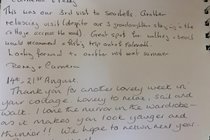 This was our 3rd visit to Seashells. Another
relaxing visit (despite our 3 grandchildren staying in the
cottage across the road). Great spot for walking, would
would recommend a fishing trip out of
Looking forward to another visit next summer
Penny & Cameron
14th - 21st August
Thank you for another lovely week in
your cottage. Lovely to relax, sail and
walk! Love the mirror in the wardrobe -
as it makes you look younger and
thinner!! We hope to return next year.